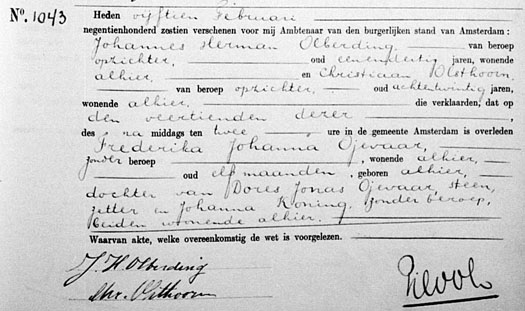 No. 1043
Heden vyftien Februari
negentienhonderd zestien verschenen voor mij Ambtenaar van den burgerlijken stand van Amsterdam :
Johannes Herman Olberding, van beroep
opzichter, oud eenendertig jaren, wonende
alhier, en Christiaan Olsthoorn,
van beroep opzichter, oud achtentwintig jaren,
wonende alhier, die verklaarden, dat op
den veertienden dezer
des na middags ten twee ure in de gemeente Amsterdam is overleden
Frederika Johanna Ojevaar,
zonder beroep, wonende alhier,
oud elf maanden, geboren alhier,
dochter van Dores Jonas Ojevaar, steen,
zetter en Johanna Koning, zonder beroep,
beiden wonende alhier.
Waarvan akte, welke overeenkomstig de wet is voorgelezen.
J H Olberding
Chr. Olsthoorn